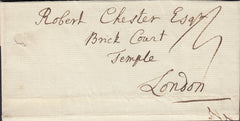 Robert Chester Esqr
Brick Court
Temple
London